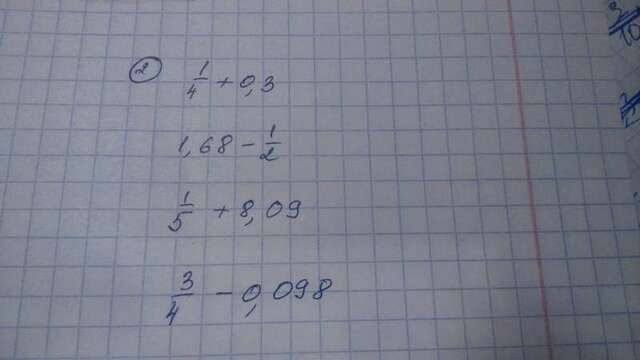 2 1/4 + 0,3
1,68 - 1/2
1/5 + 8,09
3/4 - 0,098
3/10